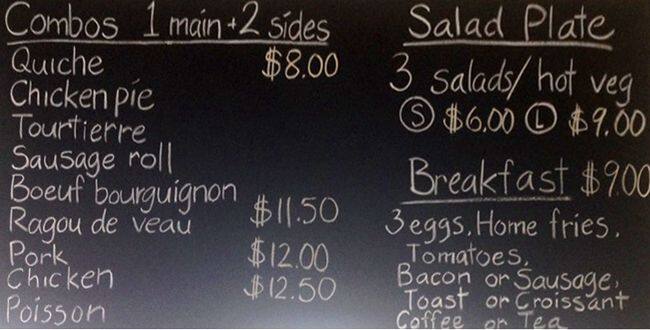 Combos 1 main + 2 sides
Quiche $8.00
Chicken pie
Tourtierre
Sausage roll
Boeuf bourguignon
Ragou de veau $11.50
Pork $12.00
Chicken $12.50
Poisson
Salad Plate
3 salads/hot veg
S $6.00 L $9.00
Breakfast $9.00
3 eggs, Home fries,
Tomatoes,
Bacon or Sausage,
Toast or Croissant
Coffee or Tea